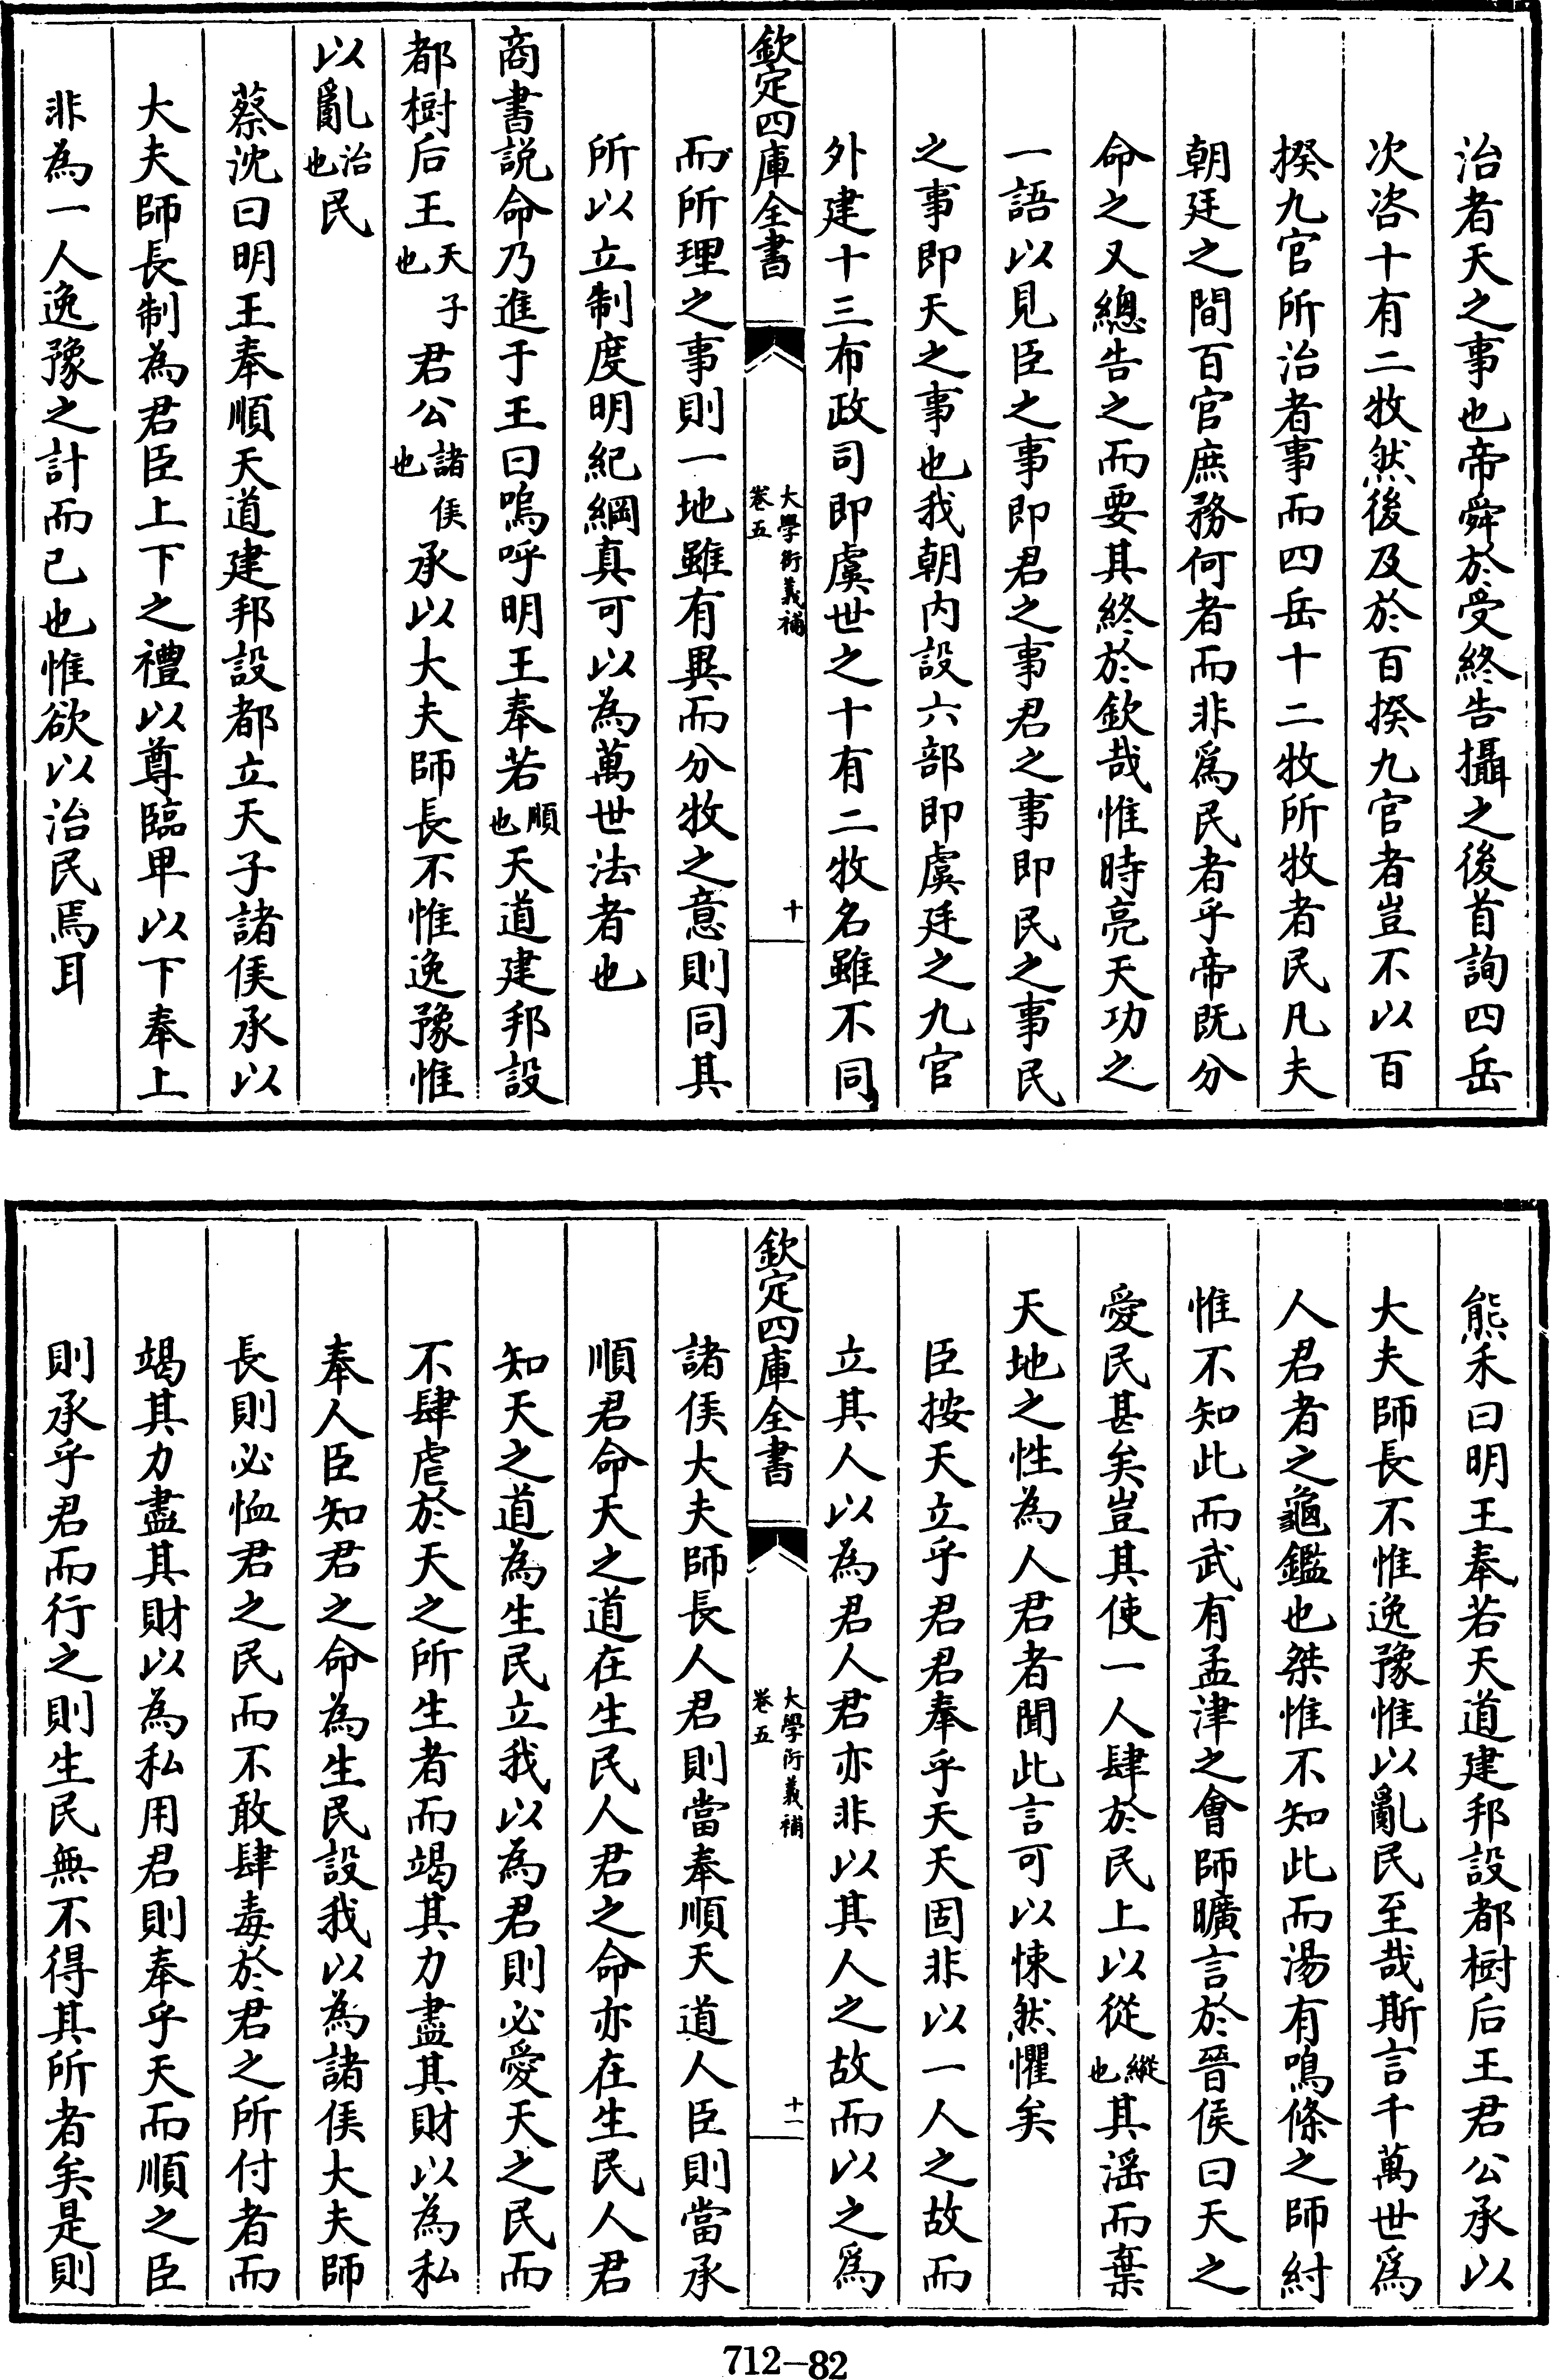 治者天之事也帝舜於受終告攝之後首詢四岳
次咨十有二牧然後及於百揆九官者豈不以百
揆九官所治者事而四岳十二牧所牧者民凡夫
朝廷之間百官庶務何者而非爲民者乎帝既分
命之又總告之而要其終於欽哉惟時亮天功之
一語以見臣之事即君之事君之事即民之事民
之事即天之事也我朝内設六部即虞廷之九官
外建十三布政司即虞世之十有二牧名雖不同
欽定四庫全書
大學衍義補
卷五
十
而所理之事則一地雖有異而分牧之意則同其
所以立制度明紀綱真可以為萬世法者也
商書説命乃進于王曰嗚呼明王奉若順也天道建邦設
都樹后王天子也君公諸侯也承以大夫師長不惟逸豫惟
以亂治也民
蔡沈曰明王奉順天道建邦設都立天子諸侯承以
大夫師長制為君臣上下之禮以尊臨卑以下奉上
非為一人逸豫之計而已也惟欲以治民焉耳
熊禾曰明王奉若天道建邦設都樹后王君公承以
大夫師長不惟逸豫惟以亂民至哉斯言千萬世爲
人君者之龜鑑也桀惟不知此而湯有鳴條之師紂
惟不知此而武有孟津之會師曠言於晉侯曰天之
愛民甚矣豈其使一人肆於民上以從縱也其滛而棄
天地之性為人君者聞此言可以悚然懼矣
臣按天立乎君君奉乎天天固非以一人之故而
立其人以為君人君亦非以其人之故而以之爲
欽定四庫全書
大學衍義補
卷五
十一
諸侯大夫師長人君則當奉順天道人臣則當承
順君命天之道在生民人君之命亦在生民人君
知天之道為生民立我以為君則必愛天之民而
不肆虐於天之所生者而竭其力盡其財以為私
奉人臣知君之命為生民設我以為諸侯大夫師
長則必恤君之民而不敢肆毒於君之所付者而
竭其力盡其財以為私用君則奉乎天而順之臣
則承乎君而行之則生民無不得其所者矣是則
712-82